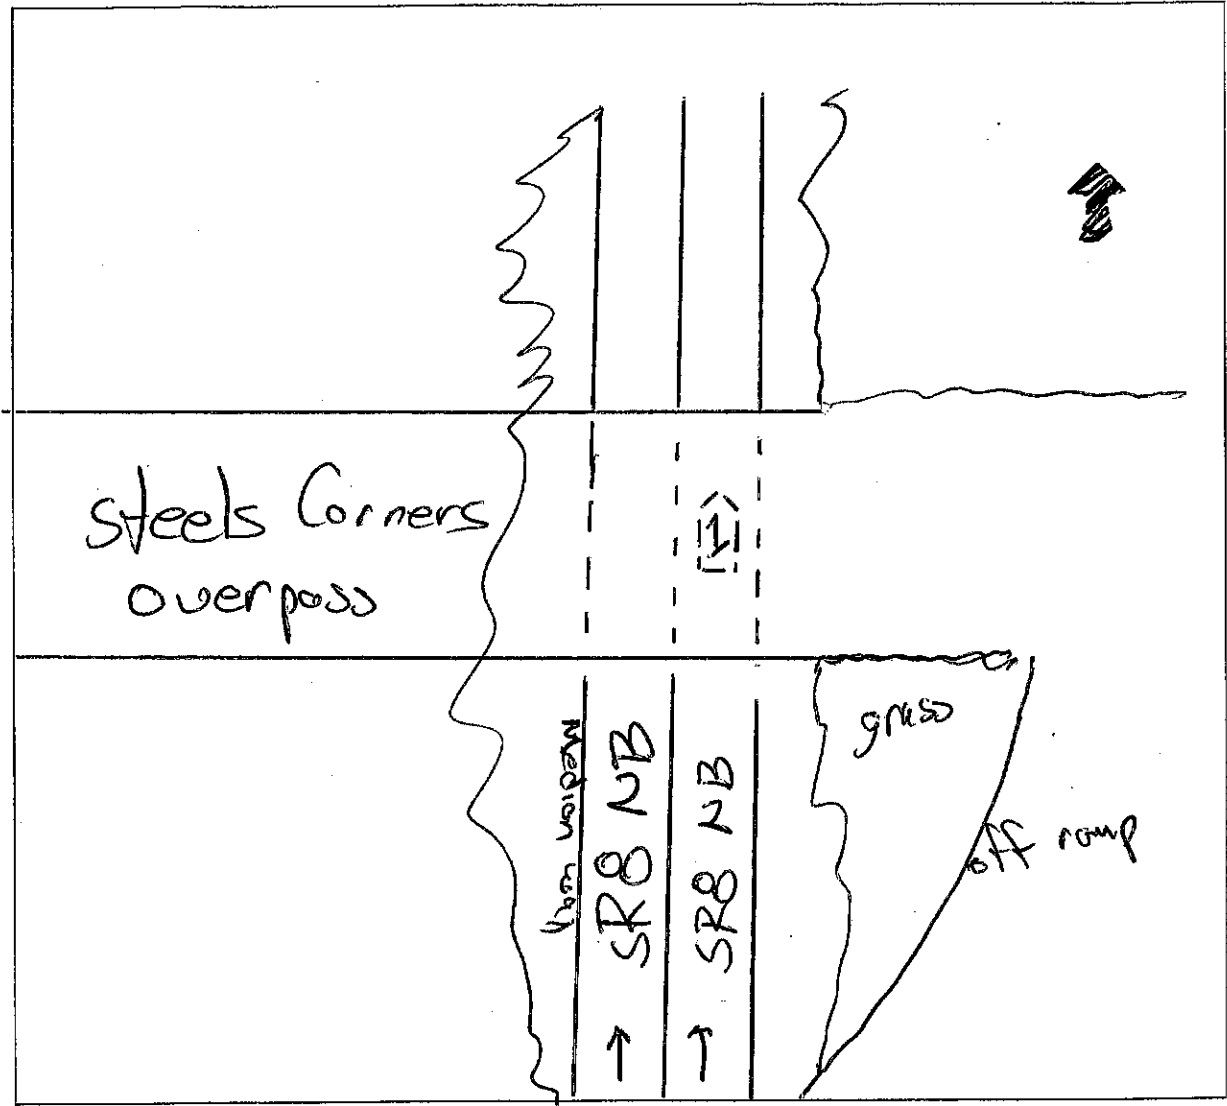 Steels Corners
overpass
1
Median way
SR8 NB
SR8 NB
grass
off ramp